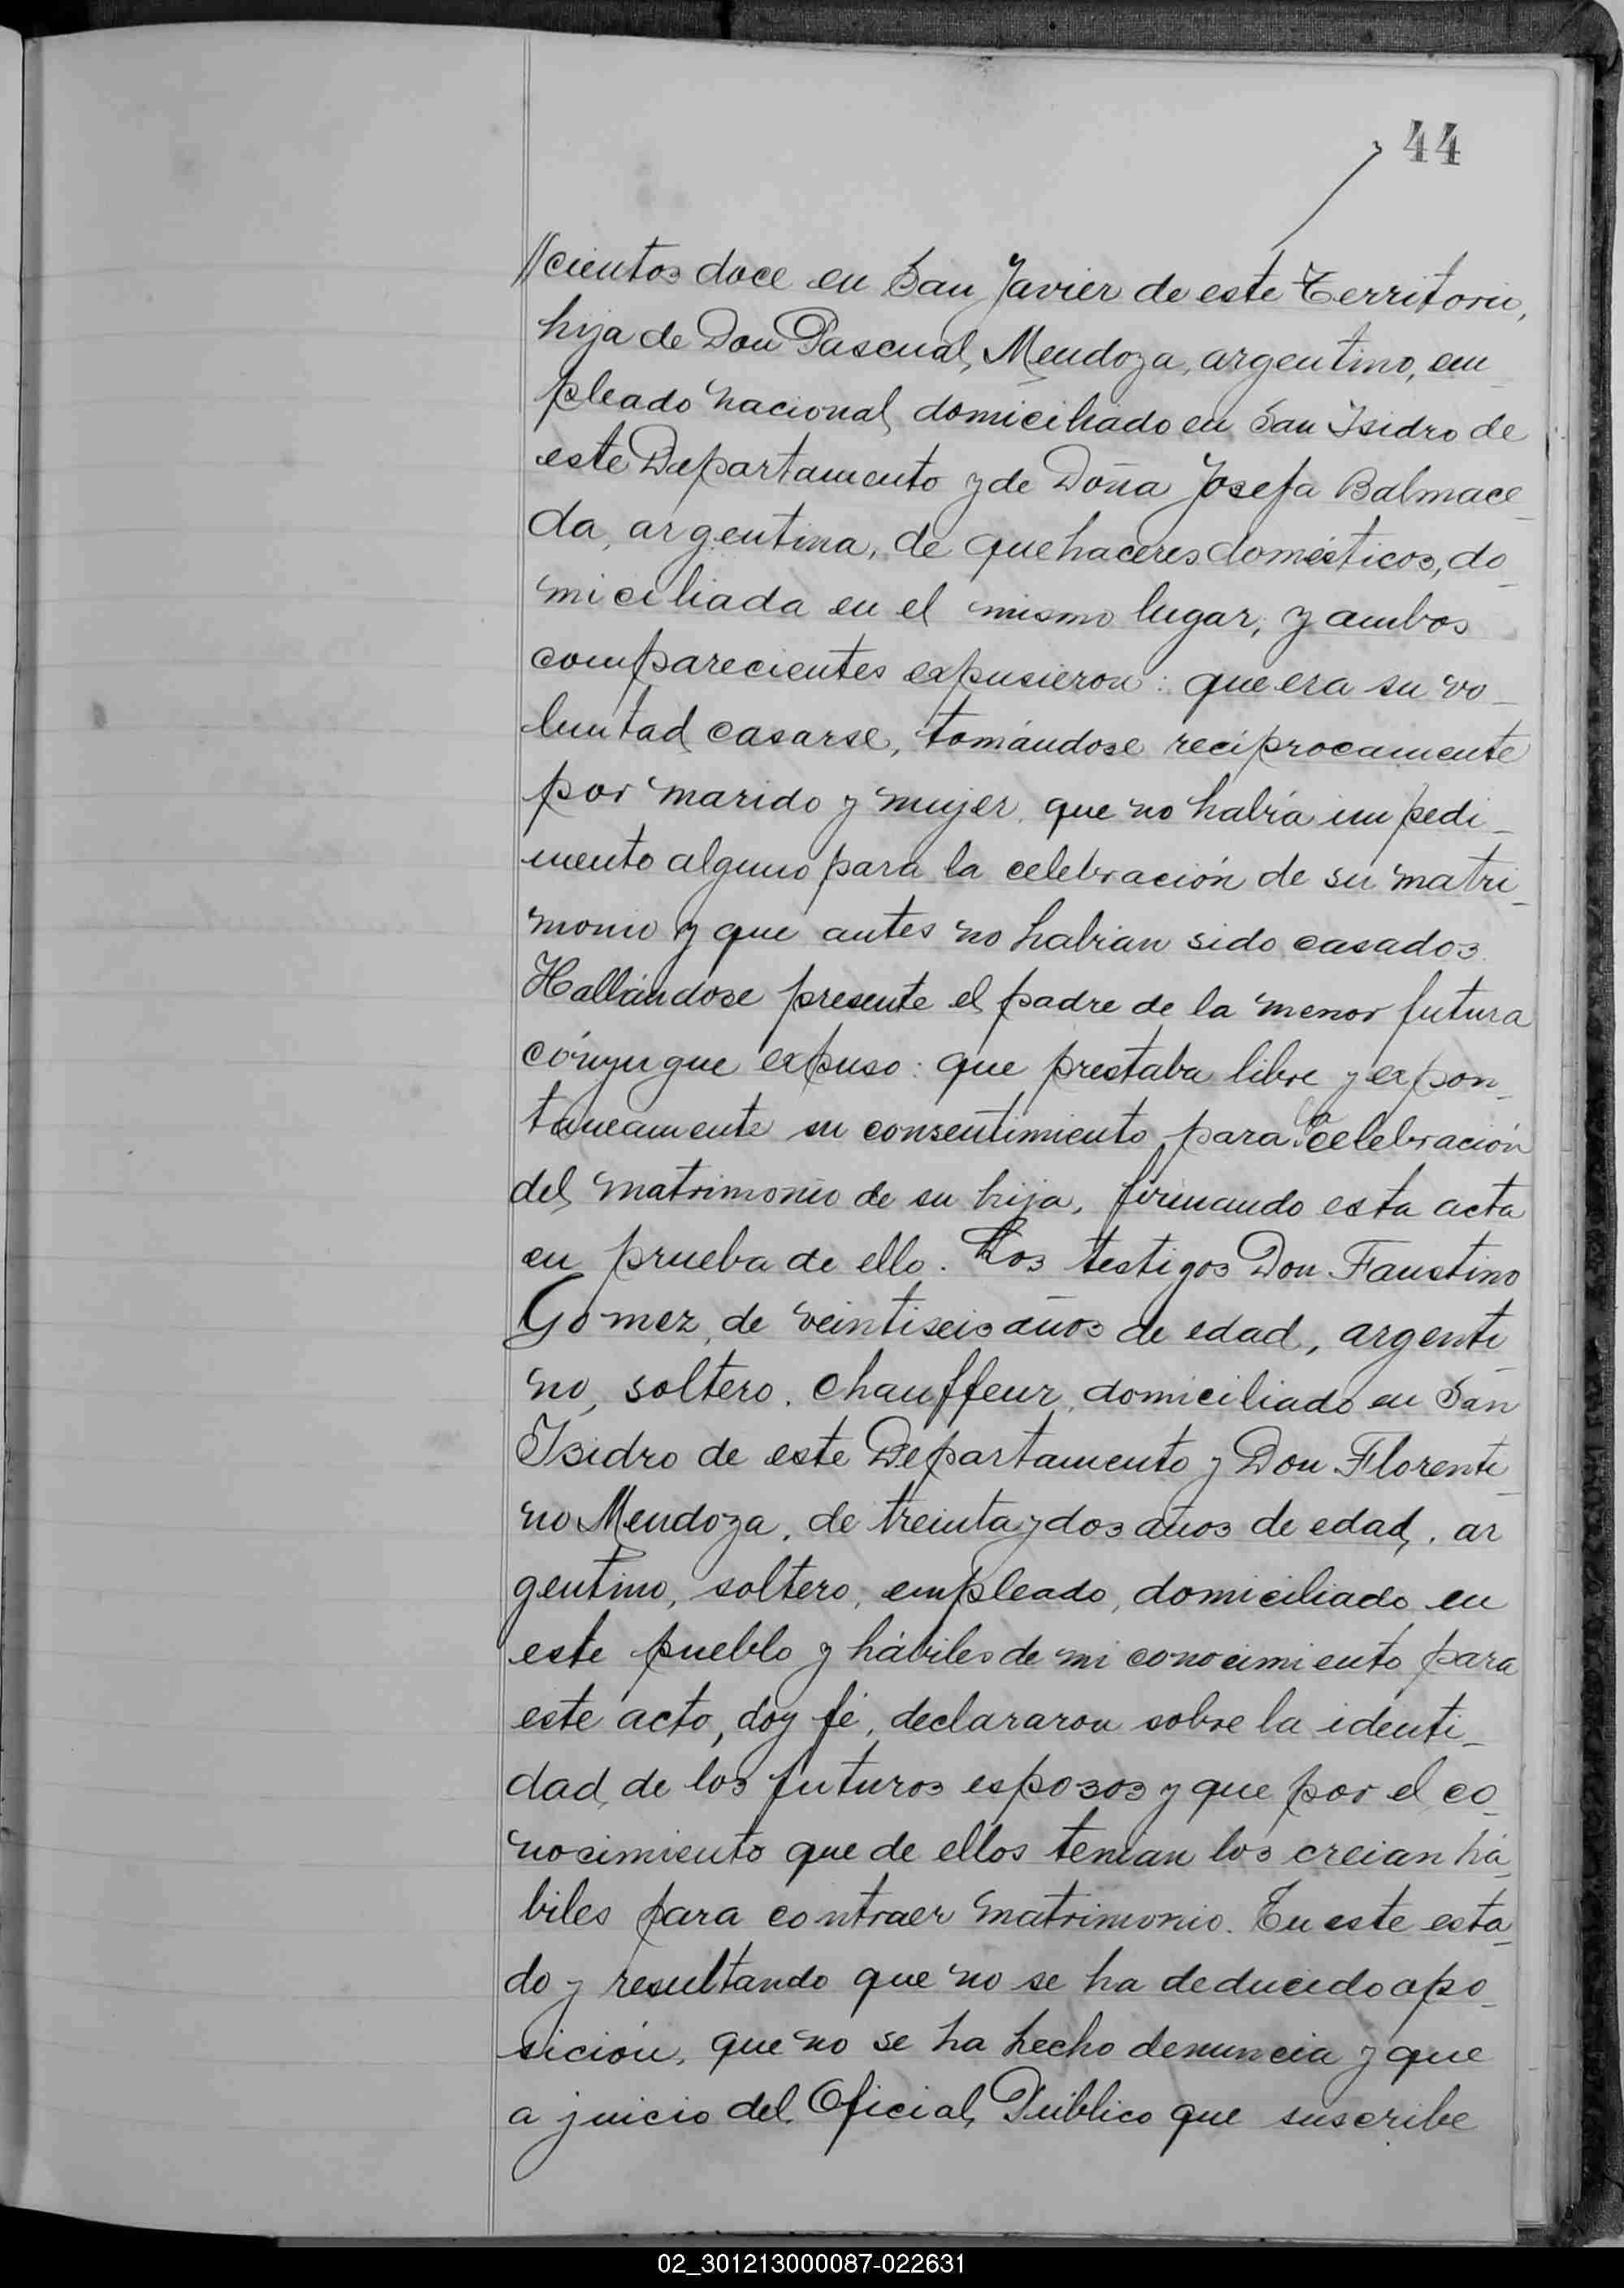 44
//cientos doce en San Javier de este Territorio,
hija de Don Pascual Mendoza, argentino, em
pleado nacional, domiciliado en San Isidro de
este Departamento y de Doña Josefa Balmace_
da, argentina, de quehaceres domésticos, do_
miciliada en el mismo lugar; y ambos
comparecientes expusieron: que era su vo_
luntad casarse, tomándose recíprocamente
por marido y mujer, que no había impedi_
mento alguno para la celebración de su matri_
monio y que antes no habían sido casados.
Hallándose presente el padre de la menor futura
cónyugue expuso: que prestaba libre y expon_
taneamente su consentimiento para la celebración
del matrimonio de su hija, firmando esta acta
en prueba de ello. Los testigos Don Faustino
Gomez, de veintiseis años de edad, argenti_
no, soltero, chauffeur, domiciliado en San
Isidro de este Departamento y Don Florenti_
no Mendoza, de treinta y dos años de edad, ar
gentino, soltero, empleado, domiciliado en
este pueblo y hábiles de mi conocimiento para
este acto, doy fé, declararon sobre la identi_
dad de los futuros esposos y que por el co_
nocimiento que de ellos tenían los creian há_
biles para contraer matrimonio. En este esta_
do y resultando que no se ha deducido opo_
sición, que no se ha hecho denuncia y que
a juicio del Oficial Público que suscribe
02_301213000087-022631